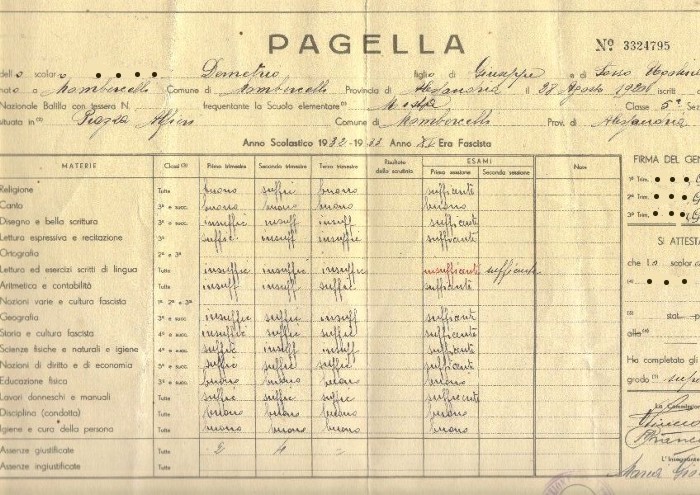 PAGELLA
Nº 3324795
dell o scolar o Demetrio figlio di Giuseppe e di
nato a Mombercelli Comune di Mombercelli Provincia di Alessandria il 28 Agosto iscritt
Nazionale Balilla con tessera N. frequentante la Scuola elementare (1) Mista Classe 5ª Se
situata in (2) Piazza Alfieri Comune di Mombercelli Prov. di Alessandria
Anno Scolastico 1932-1933 Anno XI Era Fascista
MATERIE Classi (3) Primo trimestre Secondo trimestre Terzo trimestre Risultato dello scrutinio ESAMI Prima sessione Seconda sessione Note FIRMA DEL GEN
Religione Tutte buono suffic buono sufficiente 1º Trim.
Canto 3ª e succ. buono buono buono buono 2º Trim.
Disegno e bella scrittura 3ª e succ. insuffic insuff insuff sufficiente 3º Trim.
Lettura espressiva e recitazione 3ª e succ. suffic insuff insuff sufficiente
Ortografia 2ª e 3ª SI ATTESTA
Lettura ed esercizi scritti di lingua Tutte insuffic insuffic insuffic insufficiente sufficiente che l o scolar
Aritmetica e contabilità Tutte insuff insuff suffic sufficiente
Nozioni varie e cultura fascista 1ª 2ª e 3ª
Geografia 3ª e succ. insuffic suffic insuff sufficient
Storia e cultura fascista 4ª e succ. insuffic suffic suffic sufficiente stat. p
Scienze fisiche e naturali e igiene 4ª e succ. suffic insuff insuff sufficiente
Nozioni di diritto e di economia 5ª e succ. suffic suffic suffic sufficiente Ha completato gli
Educazione fisica 3ª e succ. buono buono buono buono grado (7) supe
Lavori donneschi e manuali Tutte suffic suffic suffic sufficiente
Disciplina (condotta) Tutte buono buono buono buono La Commiss
Igiene e cura della persona Tutte buono buono buono buono
Assenze giustificate Tutte 2 4 - L'Insegnante
Assenze ingiustificate Tutte Maria